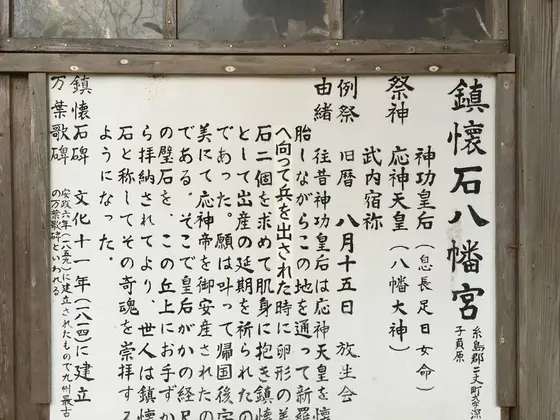 鎮懐石八幡宮
糸島郡二丈町大字深
子負原
祭神
神功皇后（息長足日女命）
応神天皇（八幡大神）
武内宿祢
例祭 旧暦 八月十五日 放生会
由緒 往昔神功皇后は応神天皇を懐
胎しながらこの地を通って新羅
へ向って兵を出された時に卵形の美
石二個を求めて肌身に抱き鎮懐
として出産の延期を祈られたの
であった。願は叶って帰国後宇
美にて応神帝を御安産されたの
である。そこで皇后がかの径尺
の璧石を、この丘上にお手ずか
ら拝納されてより、世人は鎮懐
石と称してその奇魂を崇拝する
ようになった。
鎮懐石碑 文化十一年（一八一四）に建立
万葉歌碑 安政六年（一八五九）に建立されたもので九州最古
の万葉歌碑といわれる。